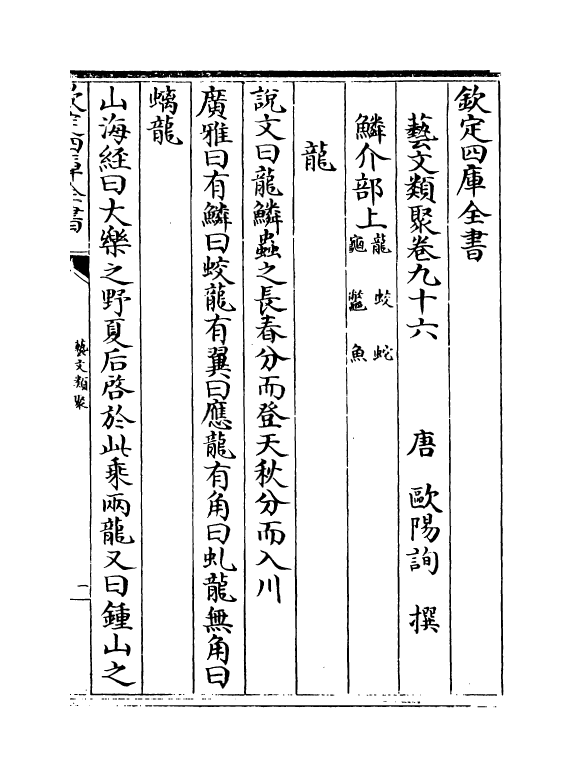 欽定四庫全書
藝文類聚卷九十六
唐 歐陽詢 撰
鱗介部上
龍 蛟 蛇
龜 鼈 魚
龍
說文曰龍鱗蟲之長春分而登天秋分而入川
廣雅曰有鱗曰蛟龍有翼曰應龍有角曰虬龍無角曰
螭龍
山海經曰大樂之野夏后啓於此乘兩龍又曰鍾山之
欽定四庫全書
藝文類聚
一